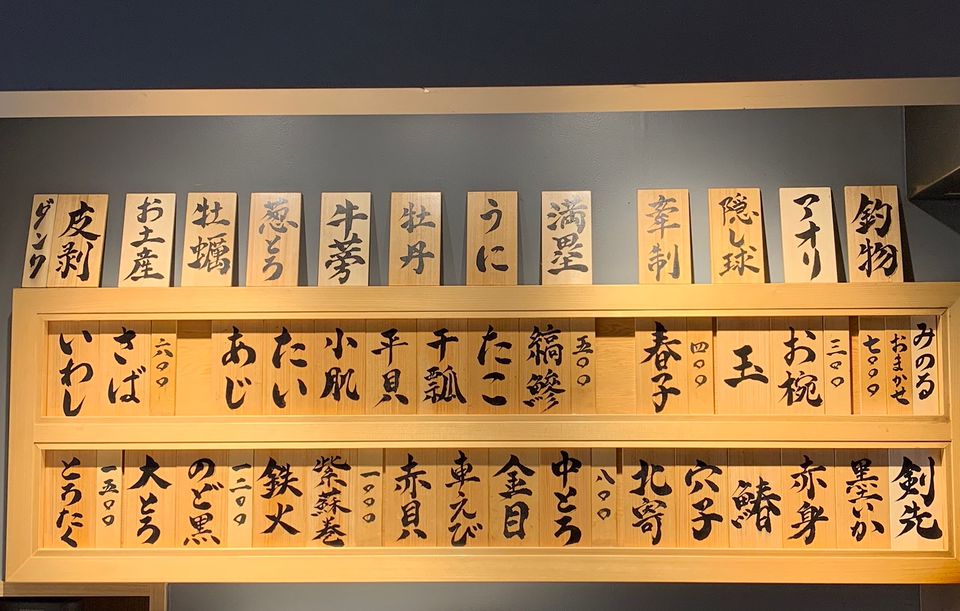 釣物
アオリ
隠し球
牽制
満塁
うに
牡丹
牛蒡
葱とろ
牡蠣
お土産
皮剥
みのる
おまかせ
七〇〇〇
三〇〇
お椀
玉
四〇〇
春子
五〇〇
縞鰺
たこ
干瓢
平貝
小肌
たい
あじ
六〇〇
さば
いわし
剣先
墨いか
赤身
鰆
穴子
北寄
八〇〇
中とろ
金目
車えび
赤貝
一〇〇〇
紫蘇巻
鉄火
一二〇〇
のど黒
大とろ
一五〇〇
とろたく